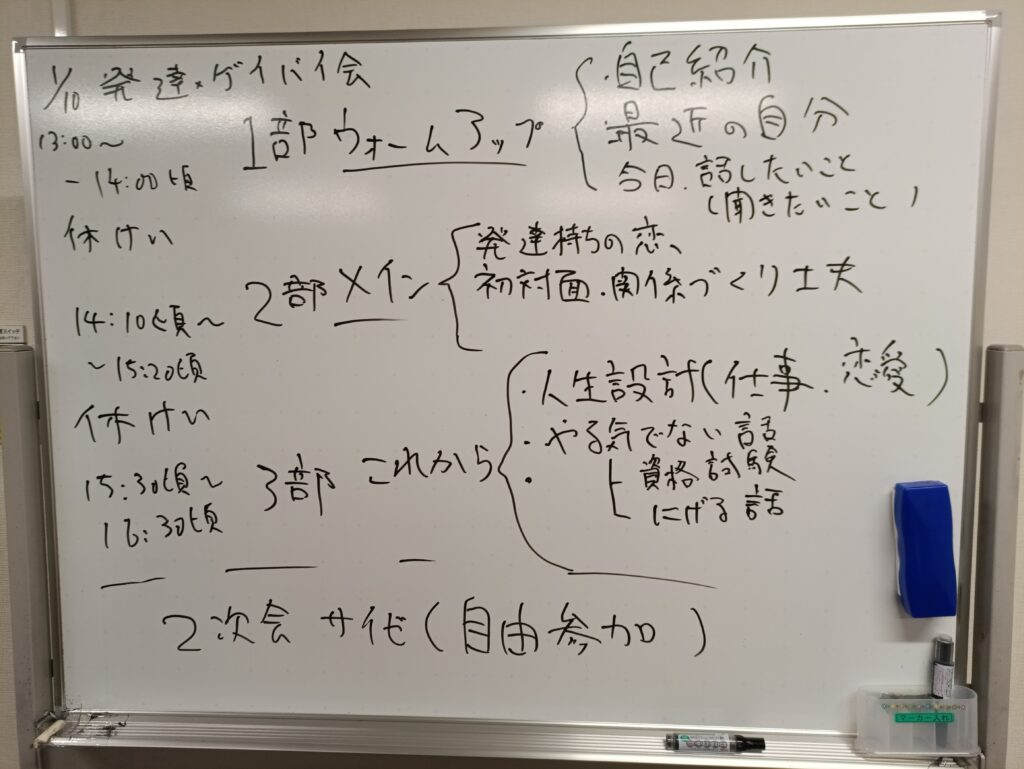 1/10 発達×ゲイバイ会
13:00〜
〜14:00頃
1部 ウォームアップ
・自己紹介
最近の自分
今日、話したいこと
(聞きたいこと)
休けい
14:10頃〜
〜15:20頃
2部 メイン
発達持ちの恋、
初対面・関係づくり工夫
休けい
15:30頃〜
16:30頃
3部 これから
・人生設計(仕事、恋愛)
・やる気でない話
・
資格試験
にげる話
2次会 サイゼ(自由参加)
マーカー入れ